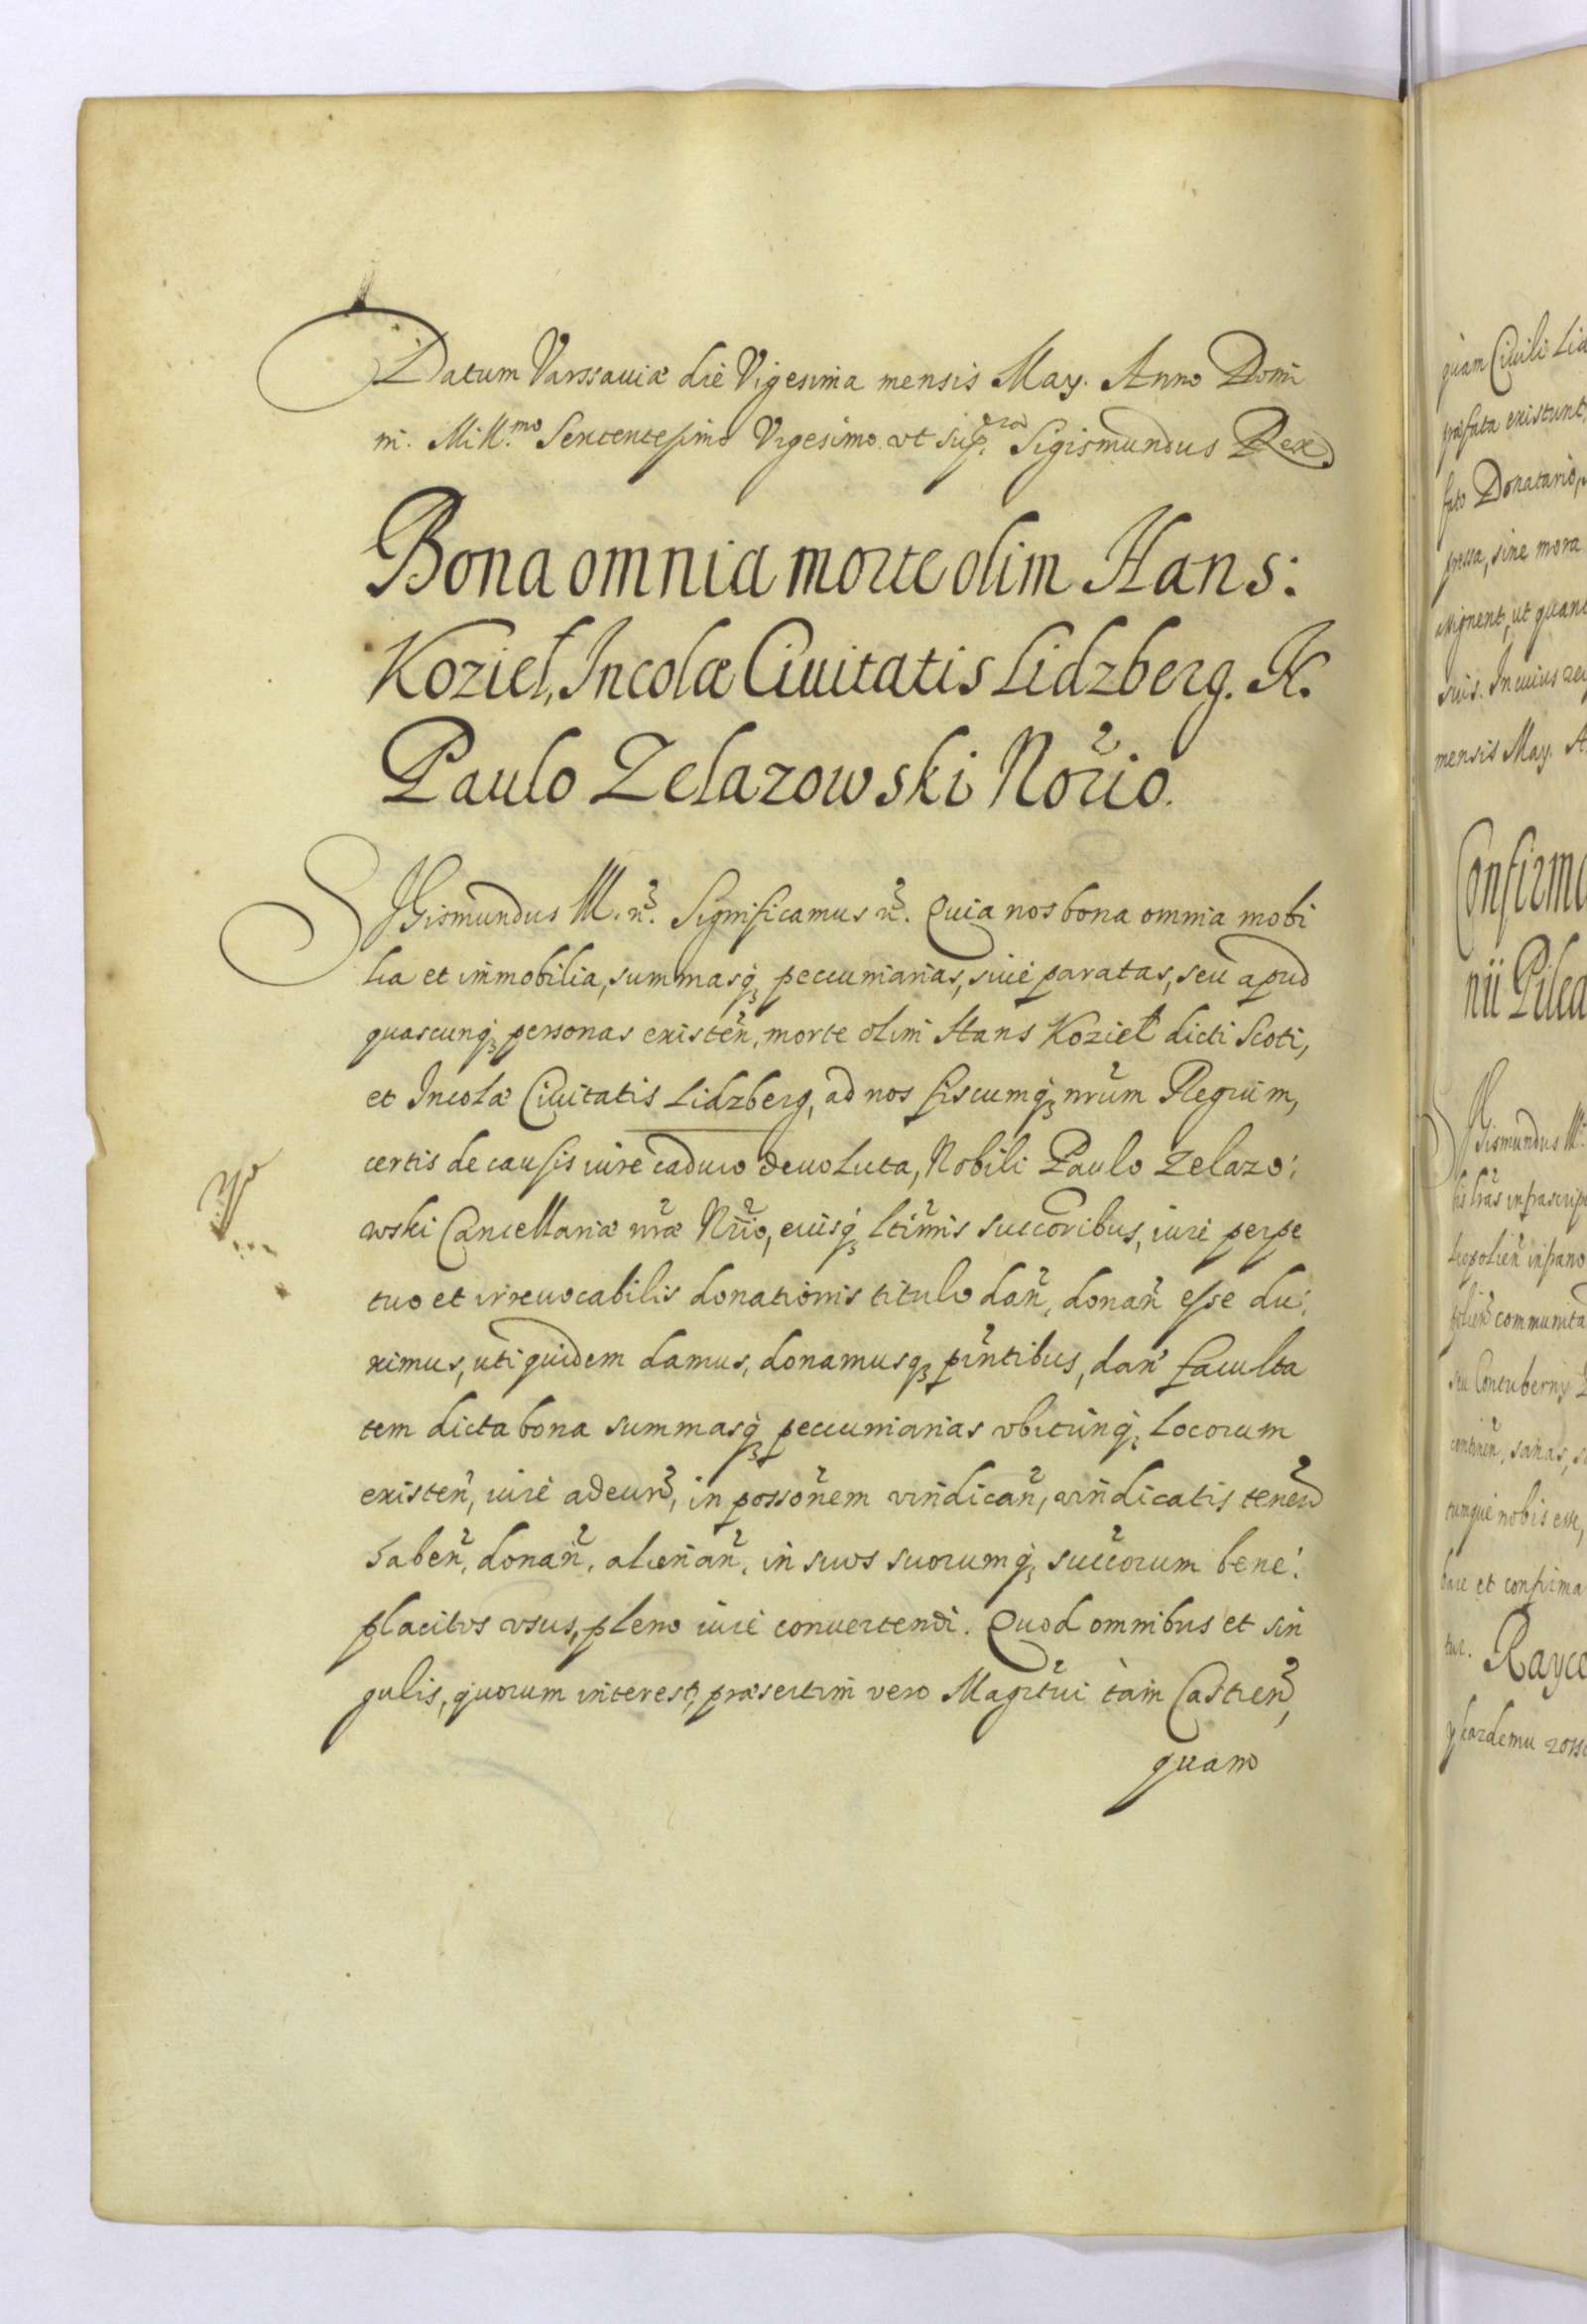 Datum Varssauiæ die Vigesima mensis May. Anno Domi
ni. Mill.mo Sexcentesimo Vigesimo. vt sup.ra Sigismundus Rex
Bona omnia morte olim Hans:
Kozieł, Incolæ Ciuitatis Lidzberg. K.
Paulo Zelazowski Nõrio.
SIGismundus III. ñ. Significamus ñ. Quia nos bona omnia mobi
lia et immobilia, summasq̃ pecuniarias, siue paratas, seu apud
quascunq̃ personas existeñ, morte olim Hans Kozieł dicti Scoti,
et Incolæ Ciuitatis Lidzberg, ad nos fiscumq̃ nrũm Regium,
certis de causis iure caduco deuoluta, Nobili Paulo Zelazo:
wski Cancellariæ nræ̃ Nrĩo, eiusq̃ ltĩmis succoribus, iure perpe
tuo et irreuocabilis donationis titulo dañ, donañ esse du:
ximus, uti quidem damus, donamusq̃ pñtibus, dañ faculta
tem dicta bona summasq̃ pecuniarias vbicunq̃ locorum
existeñ, iure adeuñd, in possoñem vindicañ, vindicatis tenend
habeñ, donañ, alienañ, in suos suorumq̃ succorum bene:
placitos vsus, pleno iure conuertendi. Quod omnibus et sin
gulis, quorum interest, præsertim vero Magrtui tam Castreñ,
quam
quam Ciuili Lid
præfata existunt
fato Donatario,
pressa, sine mora
assignent, ut quam
suis. In cuius rei
mensis May. A
Confirma
nii Pilea
SIGismundus III.
communita
seu Contuberny
tumque nobis esse,
bare et confirma
tur. Rayce